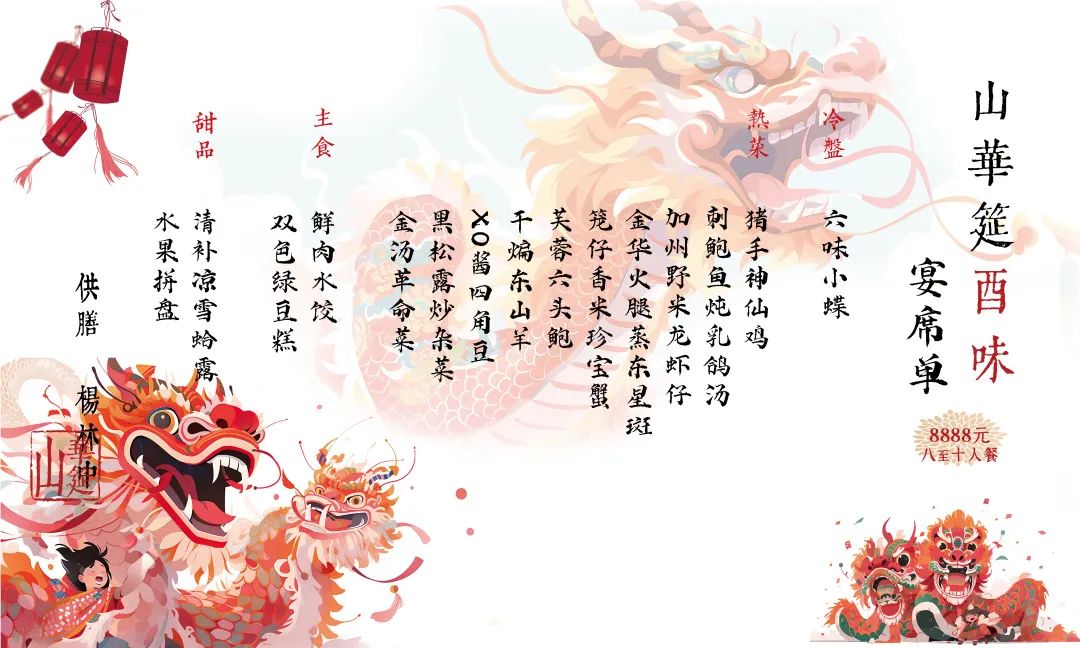 山華筵酉味
宴席单
8888元
八至十人餐
冷盤
六味小蝶
熱菜
猪手神仙鸡
刺鲍鱼炖乳鸽汤
加州野米龙虾仔
金华火腿蒸东星斑
笼仔香米珍宝蟹
芙蓉六头鲍
干煸东山羊
XO酱四角豆
黑松露炒杂菜
金汤革命菜
主食
鲜肉水饺
双色绿豆糕
甜品
清补凉雪蛤露
水果拼盘
供膳 楊林冲
山華筵